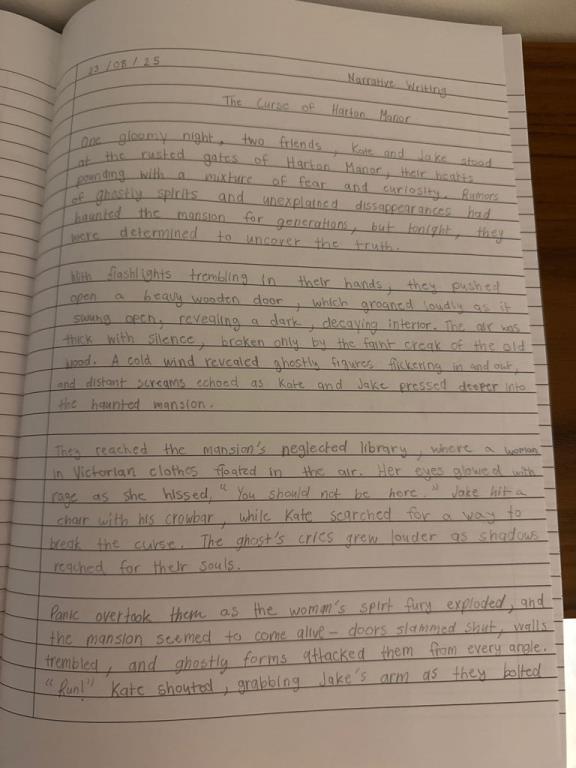 23/08/25
Narrative Writing
The Curse of Harton Manor
One gloomy night, two friends, Kate and Jake stood
at the rusted gates of Harton Manor, their hearts
pounding with a mixture of fear and curiosity. Rumors
of ghostly spirits and unexplained dissappearances had
haunted the mansion for generations, but tonight, they
were determined to uncover the truth.
With flashlights trembling in their hands, they pushed
open a heavy wooden door, which groaned loudly as it
swung open, revealing a dark, decaying interior. The air was
thick with silence, broken only by the faint creak of the old
wood. A cold wind revealed ghostly figures flickering in and out,
and distant screams echoed as Kate and Jake pressed deeper into
the haunted mansion.
They reached the mansion's neglected library, where a woman
in Victorian clothes floated in the air. Her eyes glowed with
rage as she hissed, "You should not be here." Jake hit a
chair with his crowbar, while Kate searched for a way to
break the curse. The ghost's cries grew louder as shadows
reached for their souls.
Panic overtook them as the woman's spirt fury exploded, and
the mansion seemed to come alive - doors slammed shut, walls
trembled, and ghostly forms attacked them from every angle.
"Run!" Kate shouted, grabbing Jake's arm as they bolted